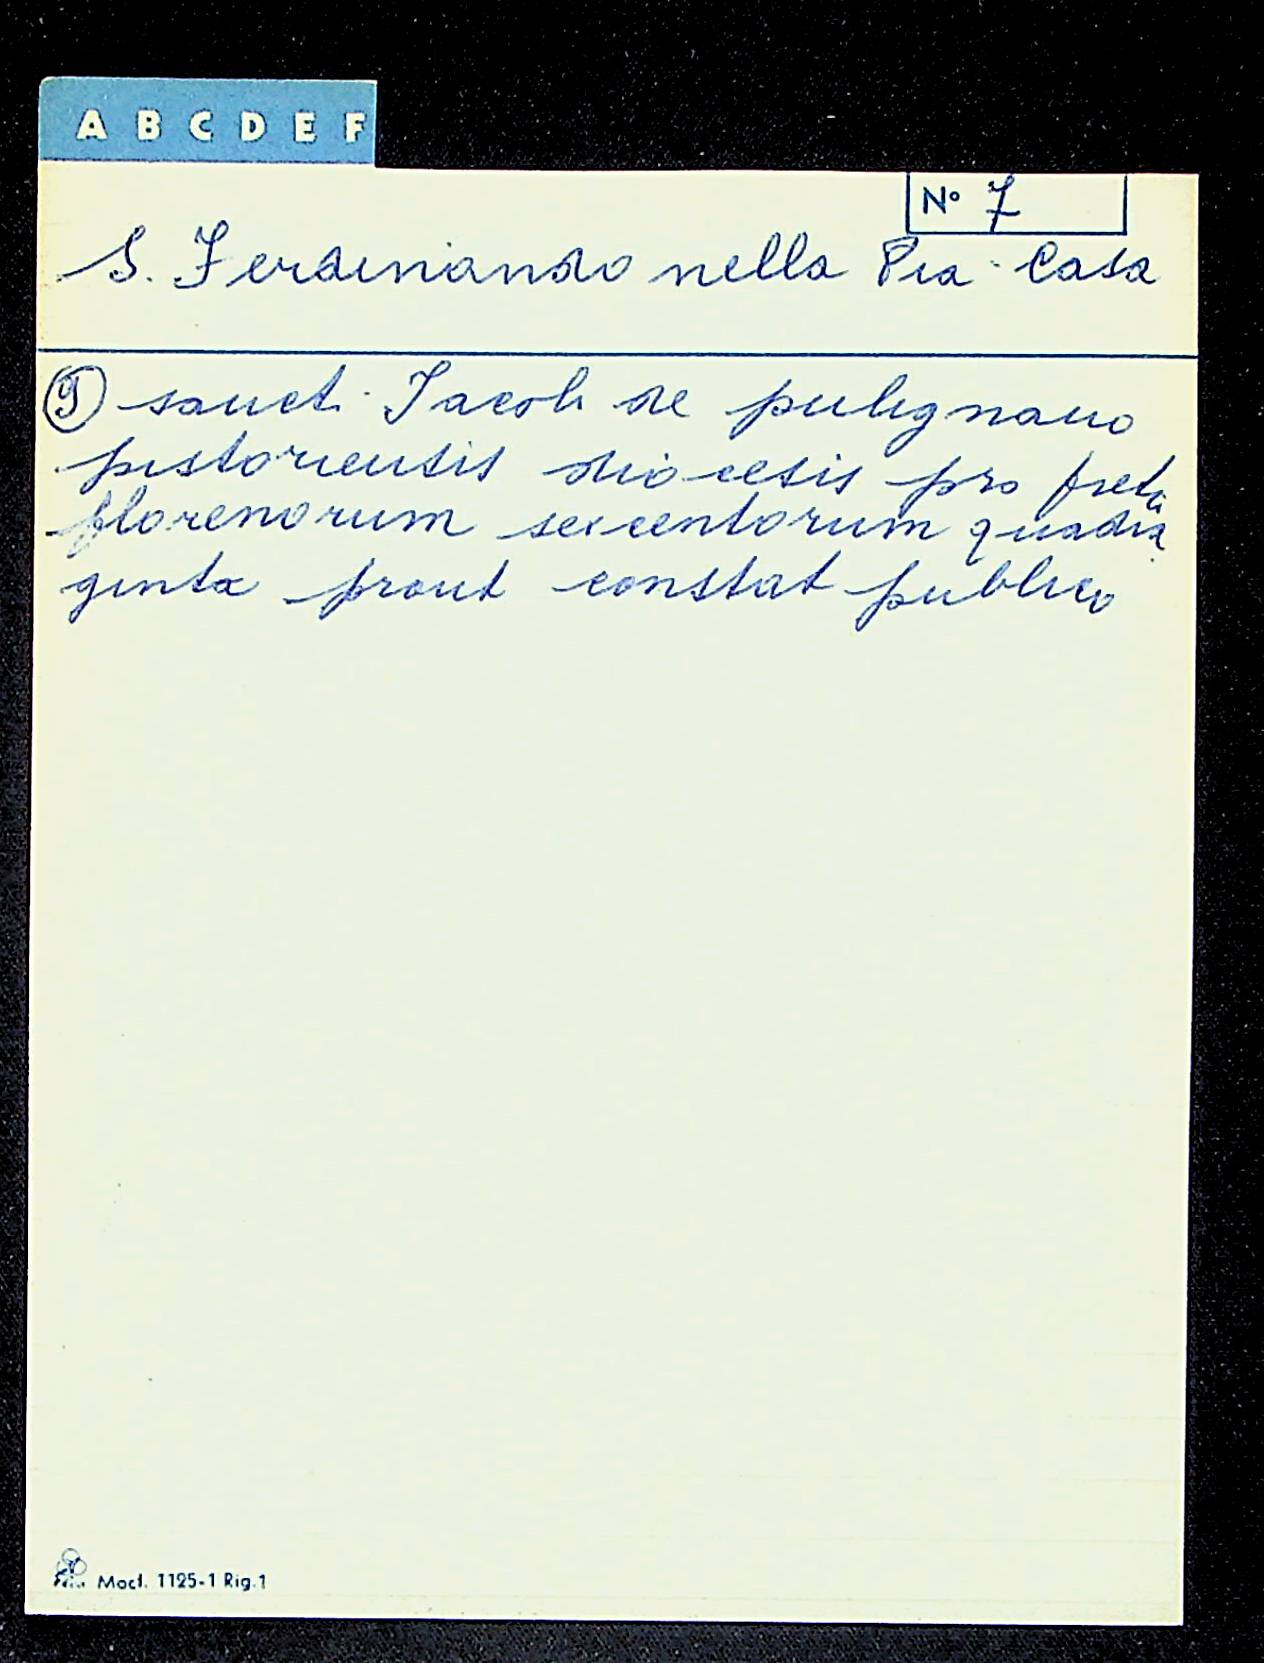 A B C D E F
Nº 7
S. Ferdinando nella Pia Casa
sanct. Jacob de pulignano
pistoriensis diocesis pro
florenorum sexcentorum quadra
ginta prout constat publico
Mod. 1125-1 Rig. 1